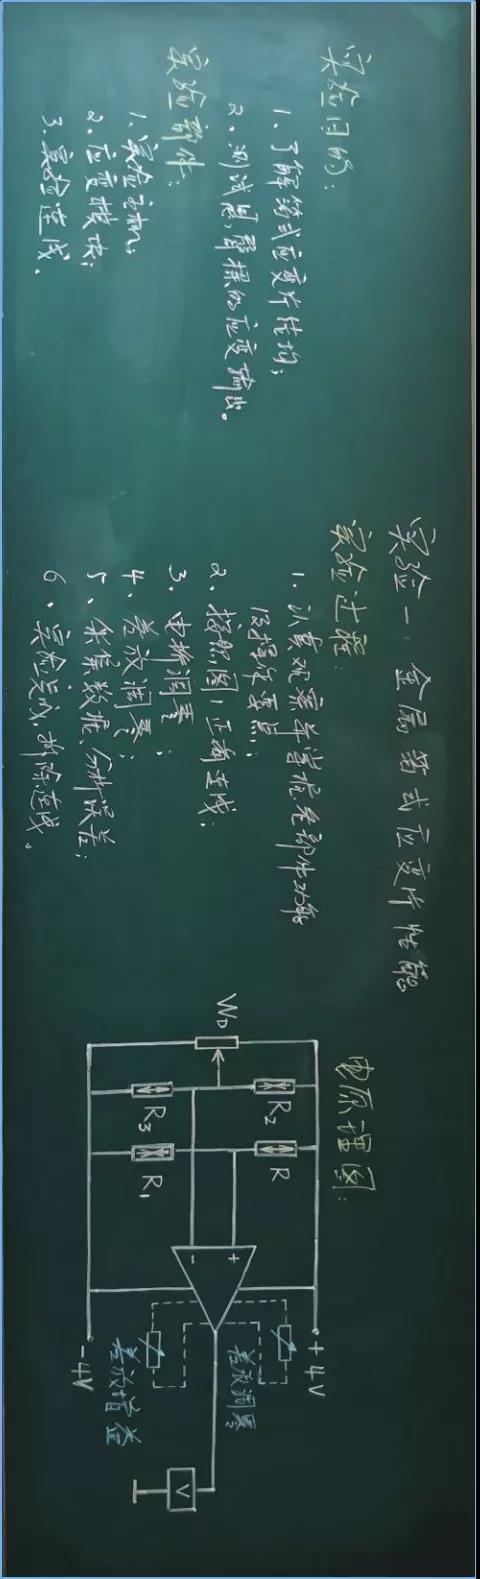 实验一 金属箔式应变片性能
实验目的:
1. 了解箔式应变片结构;
2. 测试悬臂梁的应变输出。
实验部件:
1. 实验主机;
2. 应变模块;
3. 实验连线。
实验过程:
1. 认真观察并掌握各部件功能
及操作要点;
2. 按电图,正确连线;
3. 电桥调零;
4. 差放调零;
5. 采集数据,分析误差;
6. 实验完成,拆除连线。
电原理图:
+4V
WD
R2
R
R3
R1
+
-
差放调零
差放增益
-4V
V